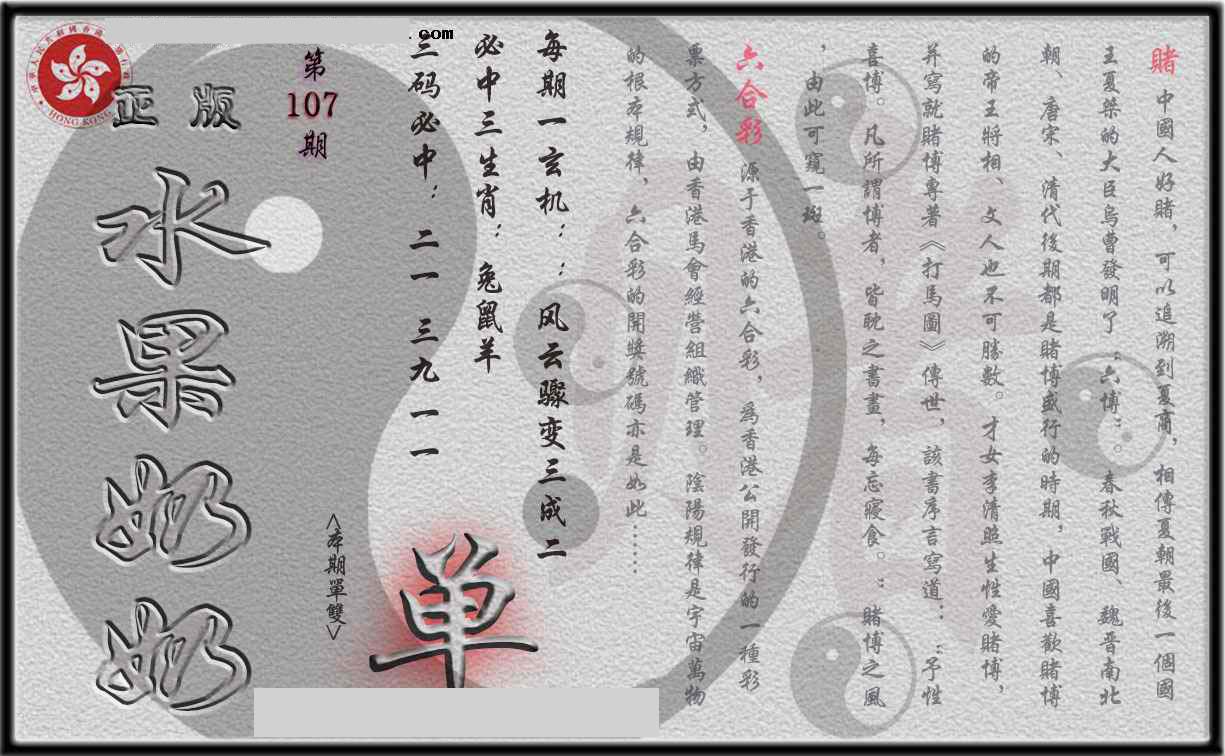 .com
賭 中國人好賭，可以追溯到夏商，相傳夏朝最後一個國
王夏桀的大臣烏曹發明了“六博”。春秋戰國、魏晋南北
朝、唐宋、清代後期都是賭博盛行的時期，中國喜歡賭博
的帝王將相、文人也不可勝數。才女李清照生性愛賭博，
并寫就賭博專著《打馬圖》傳世，該書序言寫道：“予性
喜博。凡所謂博者，皆耽之書畫，每忘寢食。”賭博之風
，由此可窺一斑。
六合彩 源于香港的六合彩，爲香港公開發行的一種彩
票方式，由香港馬會經營組織管理。陰陽規律是宇宙萬物
的根本規律、六合彩的開獎號碼亦是如此……
每期一玄机：：风云骤变三成二
必中三生肖：兔鼠羊
三码必中：二一 三九 一一
第
107
期
<本期單雙>
单
正版
水果奶奶
HONG KONG